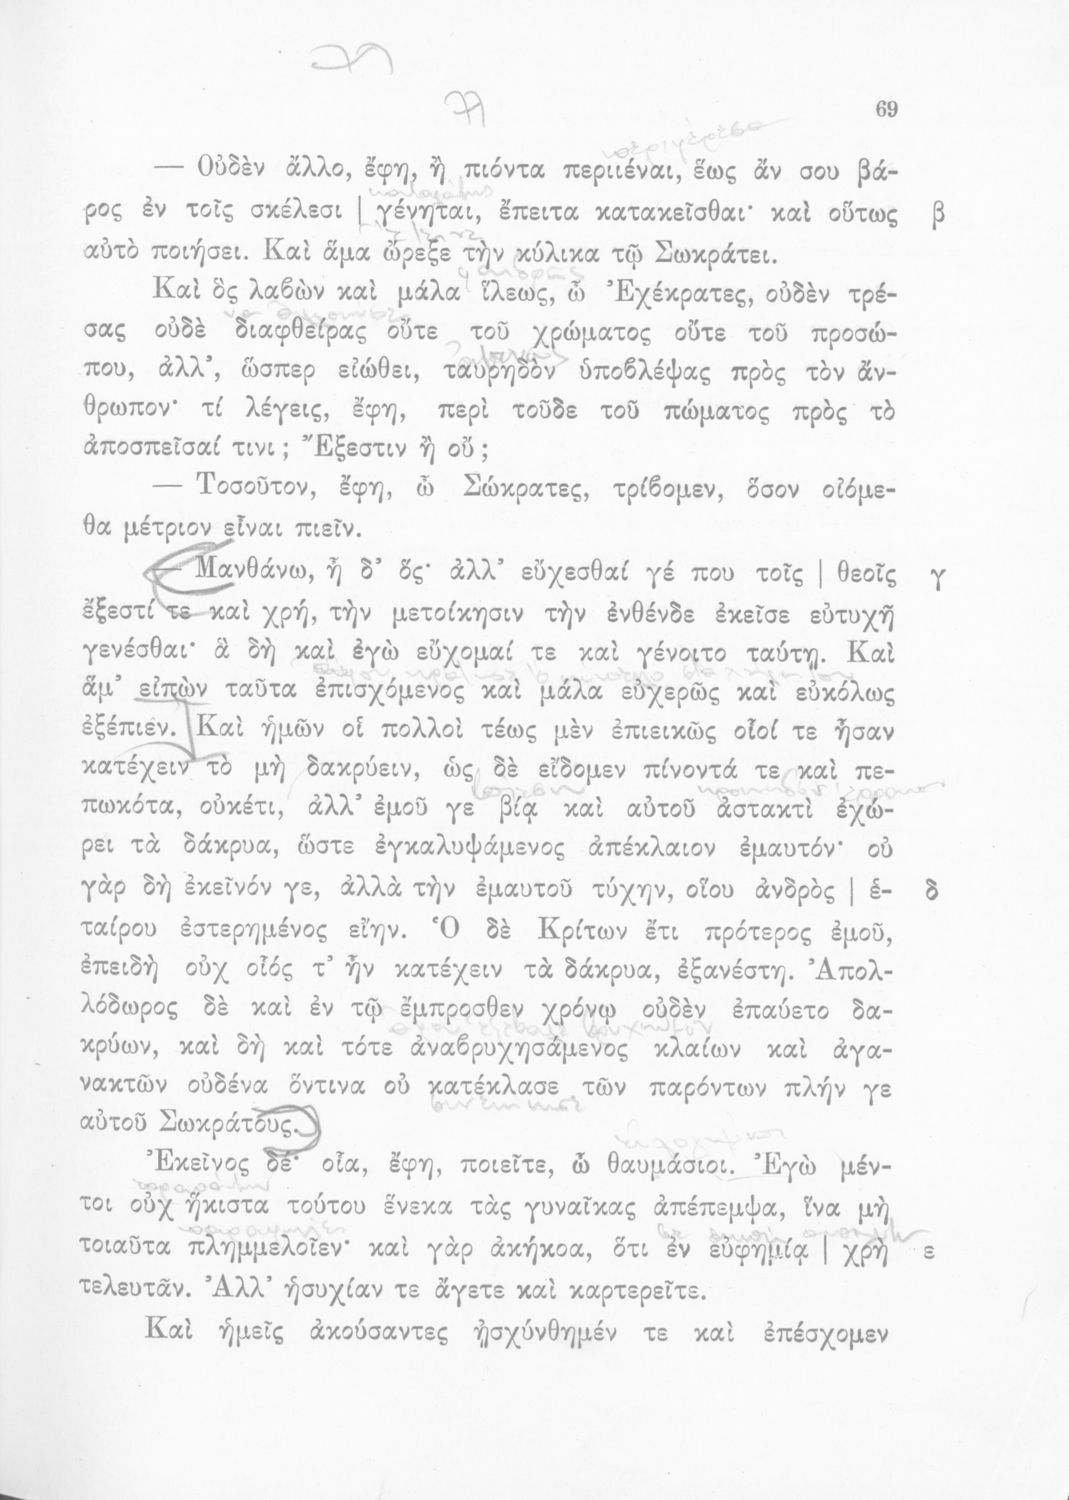 69
— Οὐδὲν ἄλλο, ἔφη, ἢ πιόντα περιιέναι, ἕως ἄν σου βά-
ρος ἐν τοῖς σκέλεσι | γένηται, ἔπειτα κατακεῖσθαι· καὶ οὕτως β
αὐτὸ ποιήσει. Καὶ ἅμα ὤρεξε τὴν κύλικα τῷ Σωκράτει.
Καὶ ὃς λαβὼν καὶ μάλα ἵλεως, ὦ Ἐχέκρατες, οὐδὲν τρέ-
σας οὐδὲ διαφθείρας οὔτε τοῦ χρώματος οὔτε τοῦ προσώ-
που, ἀλλ’, ὥσπερ εἰώθει, ταυρηδὸν ὑποβλέψας πρὸς τὸν ἄν-
θρωπον· τί λέγεις, ἔφη, περὶ τοῦδε τοῦ πώματος πρὸς τὸ
ἀποσπεῖσαί τινι ; Ἔξεστιν ἢ οὔ ;
— Τοσοῦτον, ἔφη, ὦ Σώκρατες, τρίβομεν, ὅσον οἰόμε-
θα μέτριον εἶναι πιεῖν.
— Μανθάνω, ἦ δ’ ὅς· ἀλλ’ εὔχεσθαί γέ που τοῖς | θεοῖς γ
ἔξεστί τε καὶ χρή, τὴν μετοίκησιν τὴν ἐνθένδε ἐκεῖσε εὐτυχῆ
γενέσθαι· ἃ δὴ καὶ ἐγὼ εὔχομαί τε καὶ γένοιτο ταύτῃ. Καὶ
ἅμ’ εἰπὼν ταῦτα ἐπισχόμενος καὶ μάλα εὐχερῶς καὶ εὐκόλως
ἐξέπιεν. Καὶ ἡμῶν οἱ πολλοὶ τέως μὲν ἐπιεικῶς οἷοί τε ἦσαν
κατέχειν τὸ μὴ δακρύειν, ὡς δὲ εἴδομεν πίνοντά τε καὶ πε-
πωκότα, οὐκέτι, ἀλλ’ ἐμοῦ γε βίᾳ καὶ αὐτοῦ ἀστακτὶ ἐχώ-
ρει τὰ δάκρυα, ὥστε ἐγκαλυψάμενος ἀπέκλαιον ἐμαυτόν· οὐ
γὰρ δὴ ἐκεῖνόν γε, ἀλλὰ τὴν ἐμαυτοῦ τύχην, οἵου ἀνδρὸς | ἑ- δ
ταίρου ἐστερημένος εἴην. Ὁ δὲ Κρίτων ἔτι πρότερος ἐμοῦ,
ἐπειδὴ οὐχ οἷός τ’ ἦν κατέχειν τὰ δάκρυα, ἐξανέστη. Ἀπολ-
λόδωρος δὲ καὶ ἐν τῷ ἔμπροσθεν χρόνῳ οὐδὲν ἐπαύετο δα-
κρύων, καὶ δὴ καὶ τότε ἀναβρυχησάμενος κλαίων καὶ ἀγα-
νακτῶν οὐδένα ὅντινα οὐ κατέκλασε τῶν παρόντων πλήν γε
αὐτοῦ Σωκράτους.
Ἐκεῖνος δέ· οἷα, ἔφη, ποιεῖτε, ὦ θαυμάσιοι. Ἐγὼ μέν-
τοι οὐχ ἥκιστα τούτου ἕνεκα τὰς γυναῖκας ἀπέπεμψα, ἵνα μὴ
τοιαῦτα πλημμελοῖεν· καὶ γὰρ ἀκήκοα, ὅτι ἐν εὐφημίᾳ | χρὴ ε
τελευτᾶν. Ἀλλ’ ἡσυχίαν τε ἄγετε καὶ καρτερεῖτε.
Καὶ ἡμεῖς ἀκούσαντες ᾐσχύνθημέν τε καὶ ἐπέσχομεν